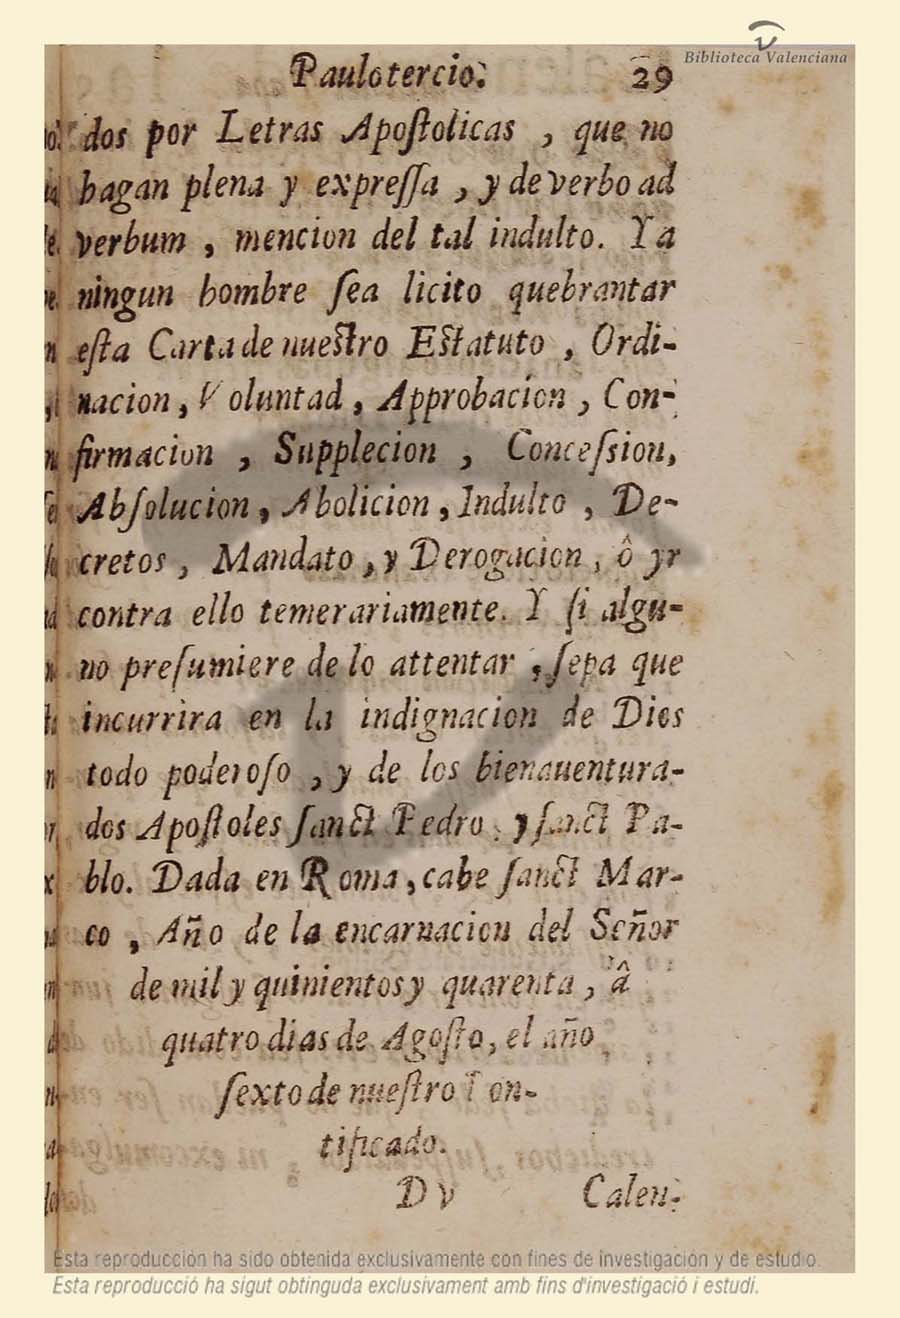 Biblioteca Valenciana
Paulo tercio. 29
dos por Letras Apoſtolicas , que no
hagan plena y expreſſa , y de verbo ad
verbum , mencion del tal indulto. Y a
ningun hombre ſea licito quebrantar
eſta Carta de nueſtro Eſtatuto , Ordi-
nacion , Voluntad , Approbacion , Con-
firmacion , Supplecion , Conceſsion,
Abſolucion , Abolicion , Indulto , De-
cretos , Mandato , y Derogacion , ô yr
contra ello temerariamente. Y ſi algu-
no preſumiere de lo attentar , ſepa que
incurrira en la indignacion de Dios
todo poderoſo , y de los bienauentura-
dos Apoſtoles ſanct Pedro , y ſanct Pa-
blo. Dada en Roma , cabe ſanct Mar-
co , Año de la encarnacion del Señor
de mil y quinientos y quarenta , â
quatro dias de Agoſto, el año
ſexto de nueſtro Pon-
tificado.
D v Calen-
Esta reproducción ha sido obtenida exclusivamente con fines de investigación y de estudio.
Esta reproducció ha sigut obtinguda exclusivament amb fins d'investigació i estudi.